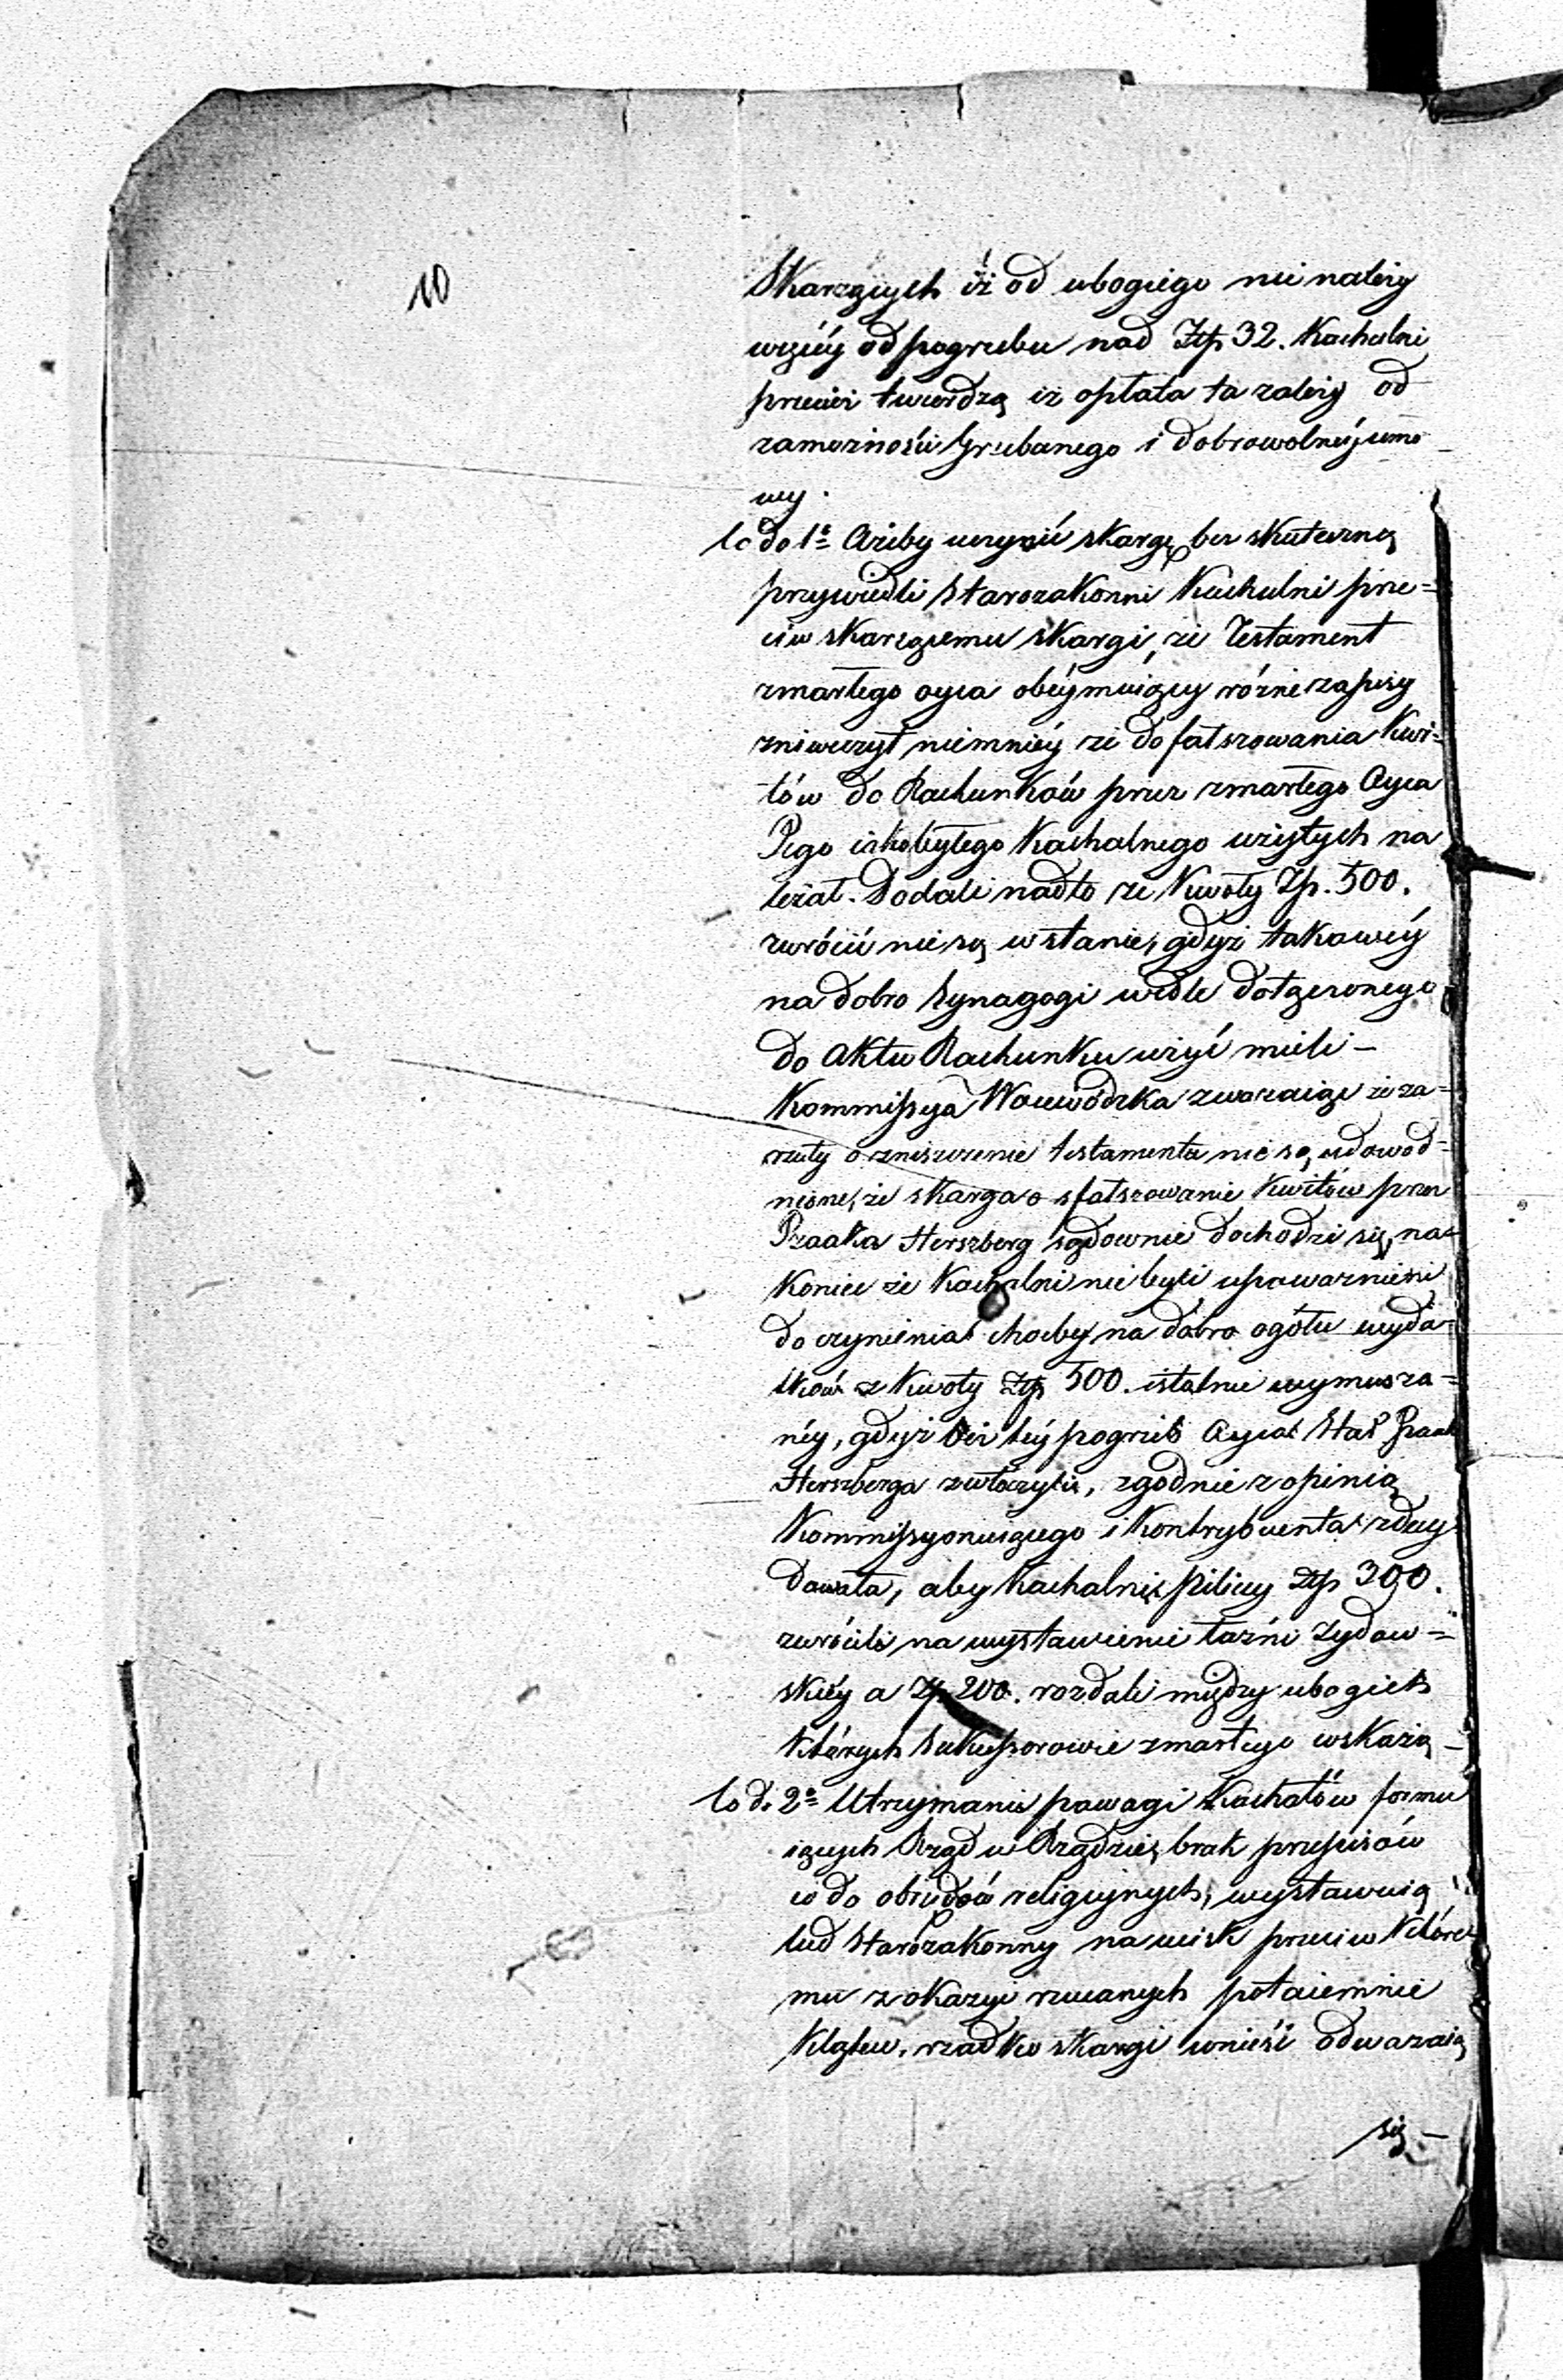 10
Skarzących iż od ubogiego nie należy
więcéy od pogrzebu nad Złp 32. Kachalni
przecież twierdzą iż opłata ta zależy od
zamożności Grzebanego i dobrowolnéy umo-
wy.
Co do 1º Ażeby uczynić skargę bez skuteczną
przywiedli Starozakonni Kachalni prze=
ciw skarzącemu skargi, że Testament
zmarłego oyca obéymuiący różne zapisy
zniweczył niemniéy że do fałszowania Kwi=
tów do Rachunków przez zmarłego Oyca
Jego iako byłego Kachalnego użytych na
leżał. Dodali nadto że Kwoty Złp. 500.
zwrócić nie są w stanie, gdyż takowéy
na dobro Synagogi wedle dołączonego
do aktu Rachunku użyć mieli –
Kommissya Woiewódzka zważaiąc że za=
rzuty o zniszczenie testamentu nie są udowod=
nione, że skarga o sfałszowanie kwitów przez
Izaaka Herszberg sądownie dochodzi się, na=
koniec że Kachalni nie byli upoważnieni
do czynienia choćby na dobro ogółu wyda=
tków z kwoty Złp 500. istotnie wymusza=
néy, gdyż bez téy pogrzeb Oyca Staº Izaak
Herszberga zwłóczyli, zgodnie z opinią
Kommissyonuiącego i Kontrybuenta zdecy=
dowała, aby Kachalni Pilicy Złp 300.
zwrócili na wystawienie łaźni Żydow=
skiéy a Złp 200. rozdali między ubogich
których Sukcessorowie zmarłego wskażą –
Co do 2º Utrzymanie powagi Kachałów formu
iących Rząd w Rządzie, brak przepisów
co do obrzędów religiynych, wystawuią
lud Starozakonny na ucisk przeciw które
mu z okazyi rzucanych potaiemnie
Klątew, rzadko skargi wnieść odważaią
się –